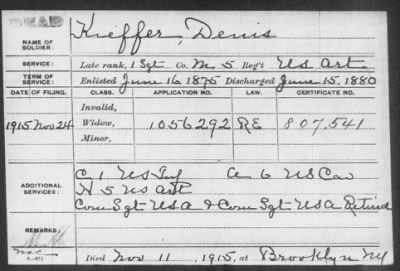 DEAD
NAME OF SOLDIER: Kieffer, Denis
SERVICE: Late rank, 1 Sgt Co. M, 5 Reg't US Art
TERM OF SERVICE: Enlisted June 16, 1875 Discharged June 15, 1880
DATE OF FILING. CLASS. APPLICATION NO. LAW. CERTIFICATE NO.
Invalid,
1915 Nov 24 Widow, 1056292 RE 807.541
Minor,
ADDITIONAL SERVICES: C 1 US Inf A 6 US Cav
H 5 US Art
Com Sgt USA & Com Sgt USA Retired
REMARKS:
Died Nov 11, 1915, at Brooklyn NY